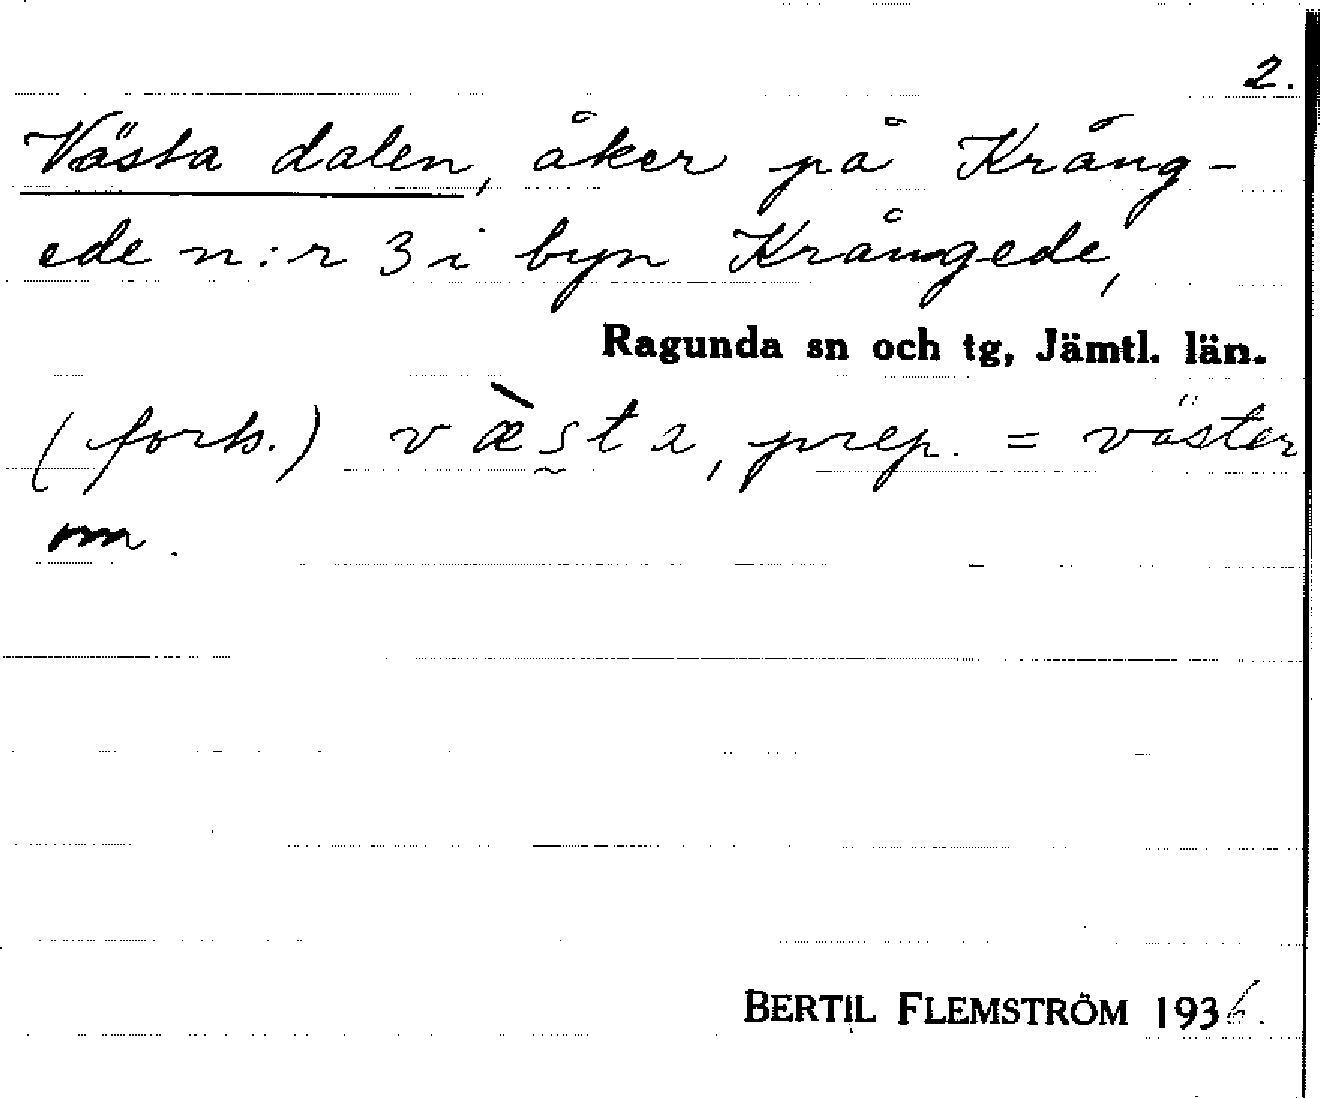 2.
Västa dalen, åker på Krång-
ede n:r 3 i byn Krångede,
Ragunda sn och tg, Jämtl. län.
(forts.) væ̀s̰ta, prep. = väster
om.
BERTIL FLEMSTRÖM 1936.